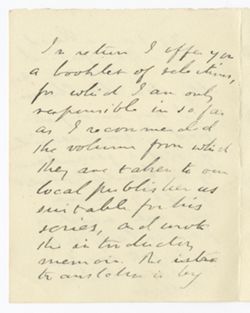 In return I offer you
a booklet of selections,
for which I am only
responsible in so far
as I recommended
the volumes from which
they are taken to our
local publisher as
suitable for his
series, and wrote
the introductory
memoir. The
translation is by